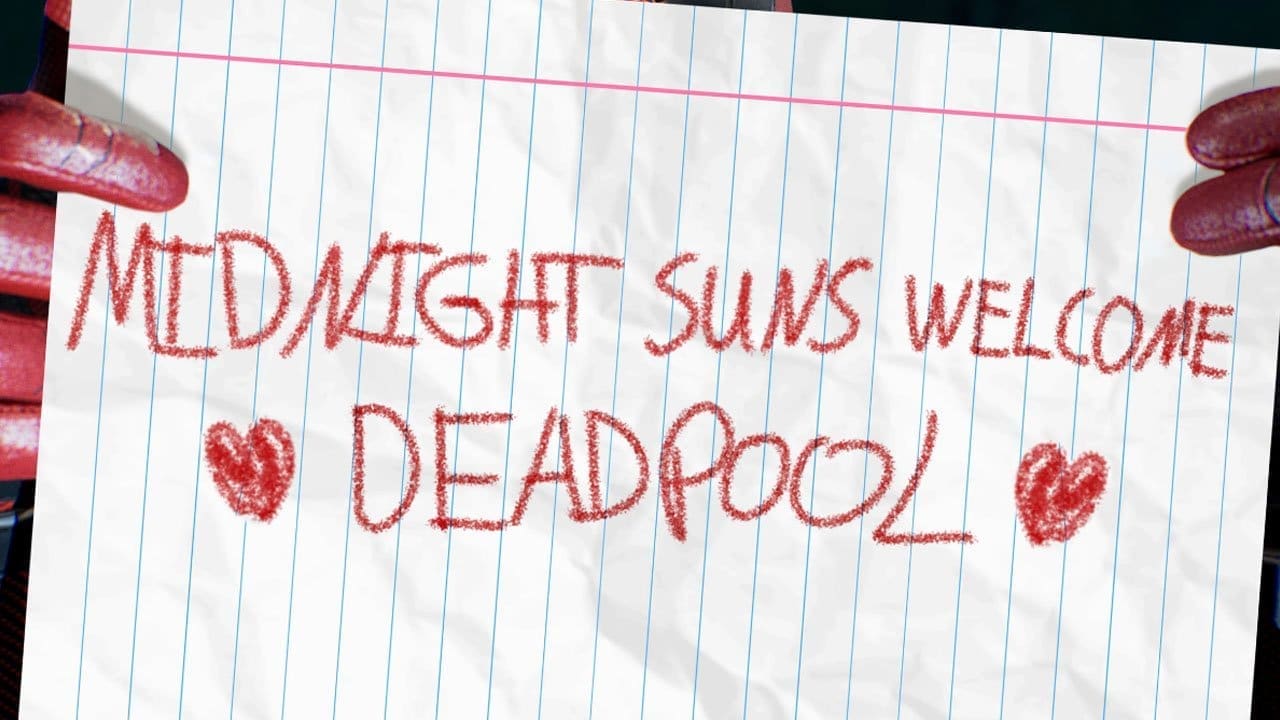 MIDNIGHT SUNS WELCOME
DEADPOOL